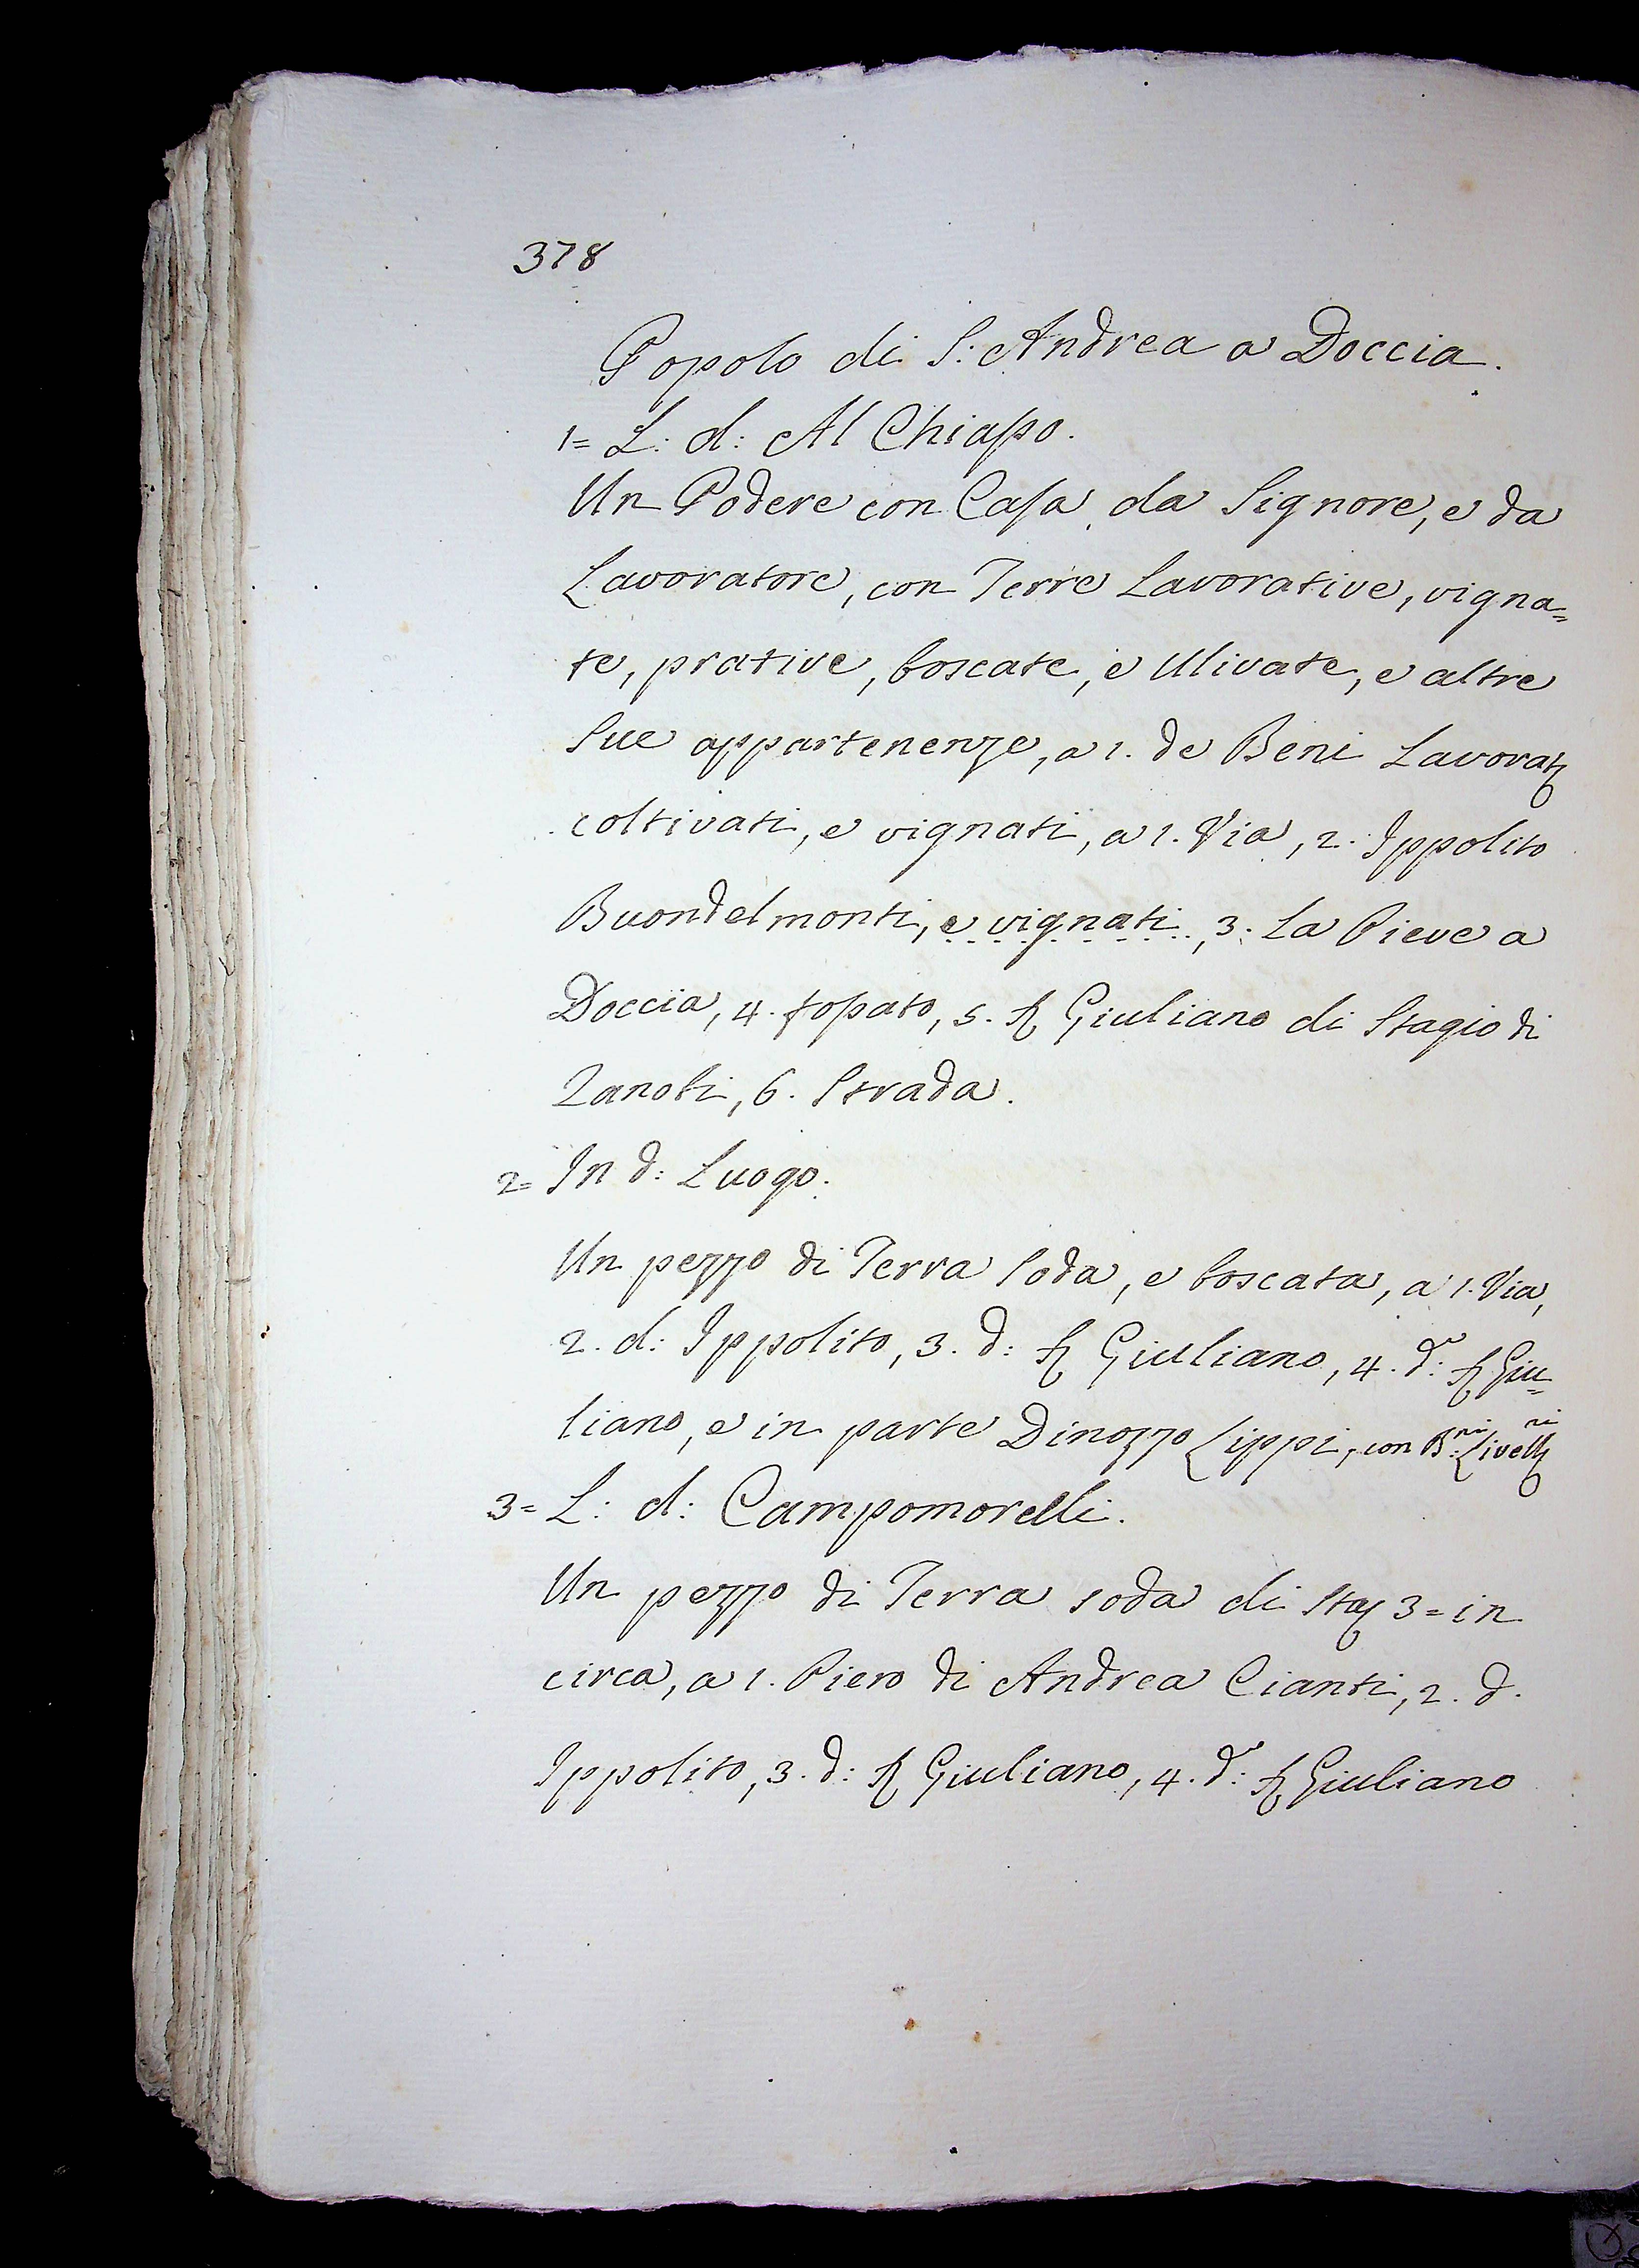 378
Popolo di S: Andrea a Doccia.
1= L: d: Al Chiasso.
Un Podere con Casa da Signore, e da
Lavoratore, con Terre Lavorative, vigna=
te, prative, boscate, e Ulivate, e altre
Sue appartenenze, a 1. de Beni Lavorat
coltivati, e vignati, a 1. Via, 2. Ippolito
Buondelmonti, e vignati, 3. La Pieve a
Doccia, 4. fossato, 5. Giuliano di Stagio di
Zanobi, 6. Strada.
2= In d: Luogo.
Un pezzo di Terra Soda, e boscata, a 1. Via,
2. d: Ippolito, 3. d: Giuliano, 4. d: Giu=
liano, e in parte Dinozzo Lippi, con B:ni Livell:ri
3= L: d: Campomorelli.
Un pezzo di Terra soda di Sta 3= in
circa, a 1. Piero di Andrea Cianti, 2. d.
Ippolito, 3. d: Giuliano, 4. d: Giuliano